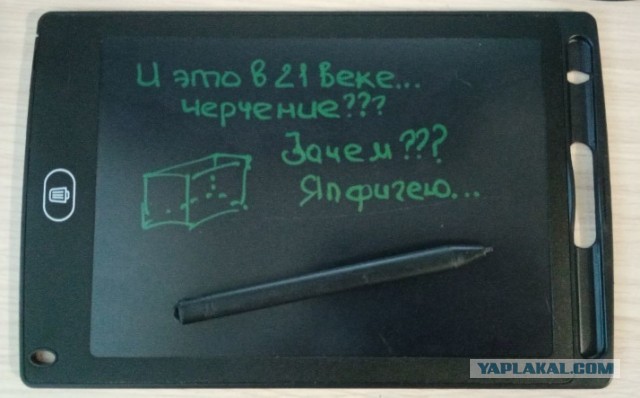 И это в 21 веке...
черчение???
Зачем???
Япфигею...
YAPLAKAL.COM